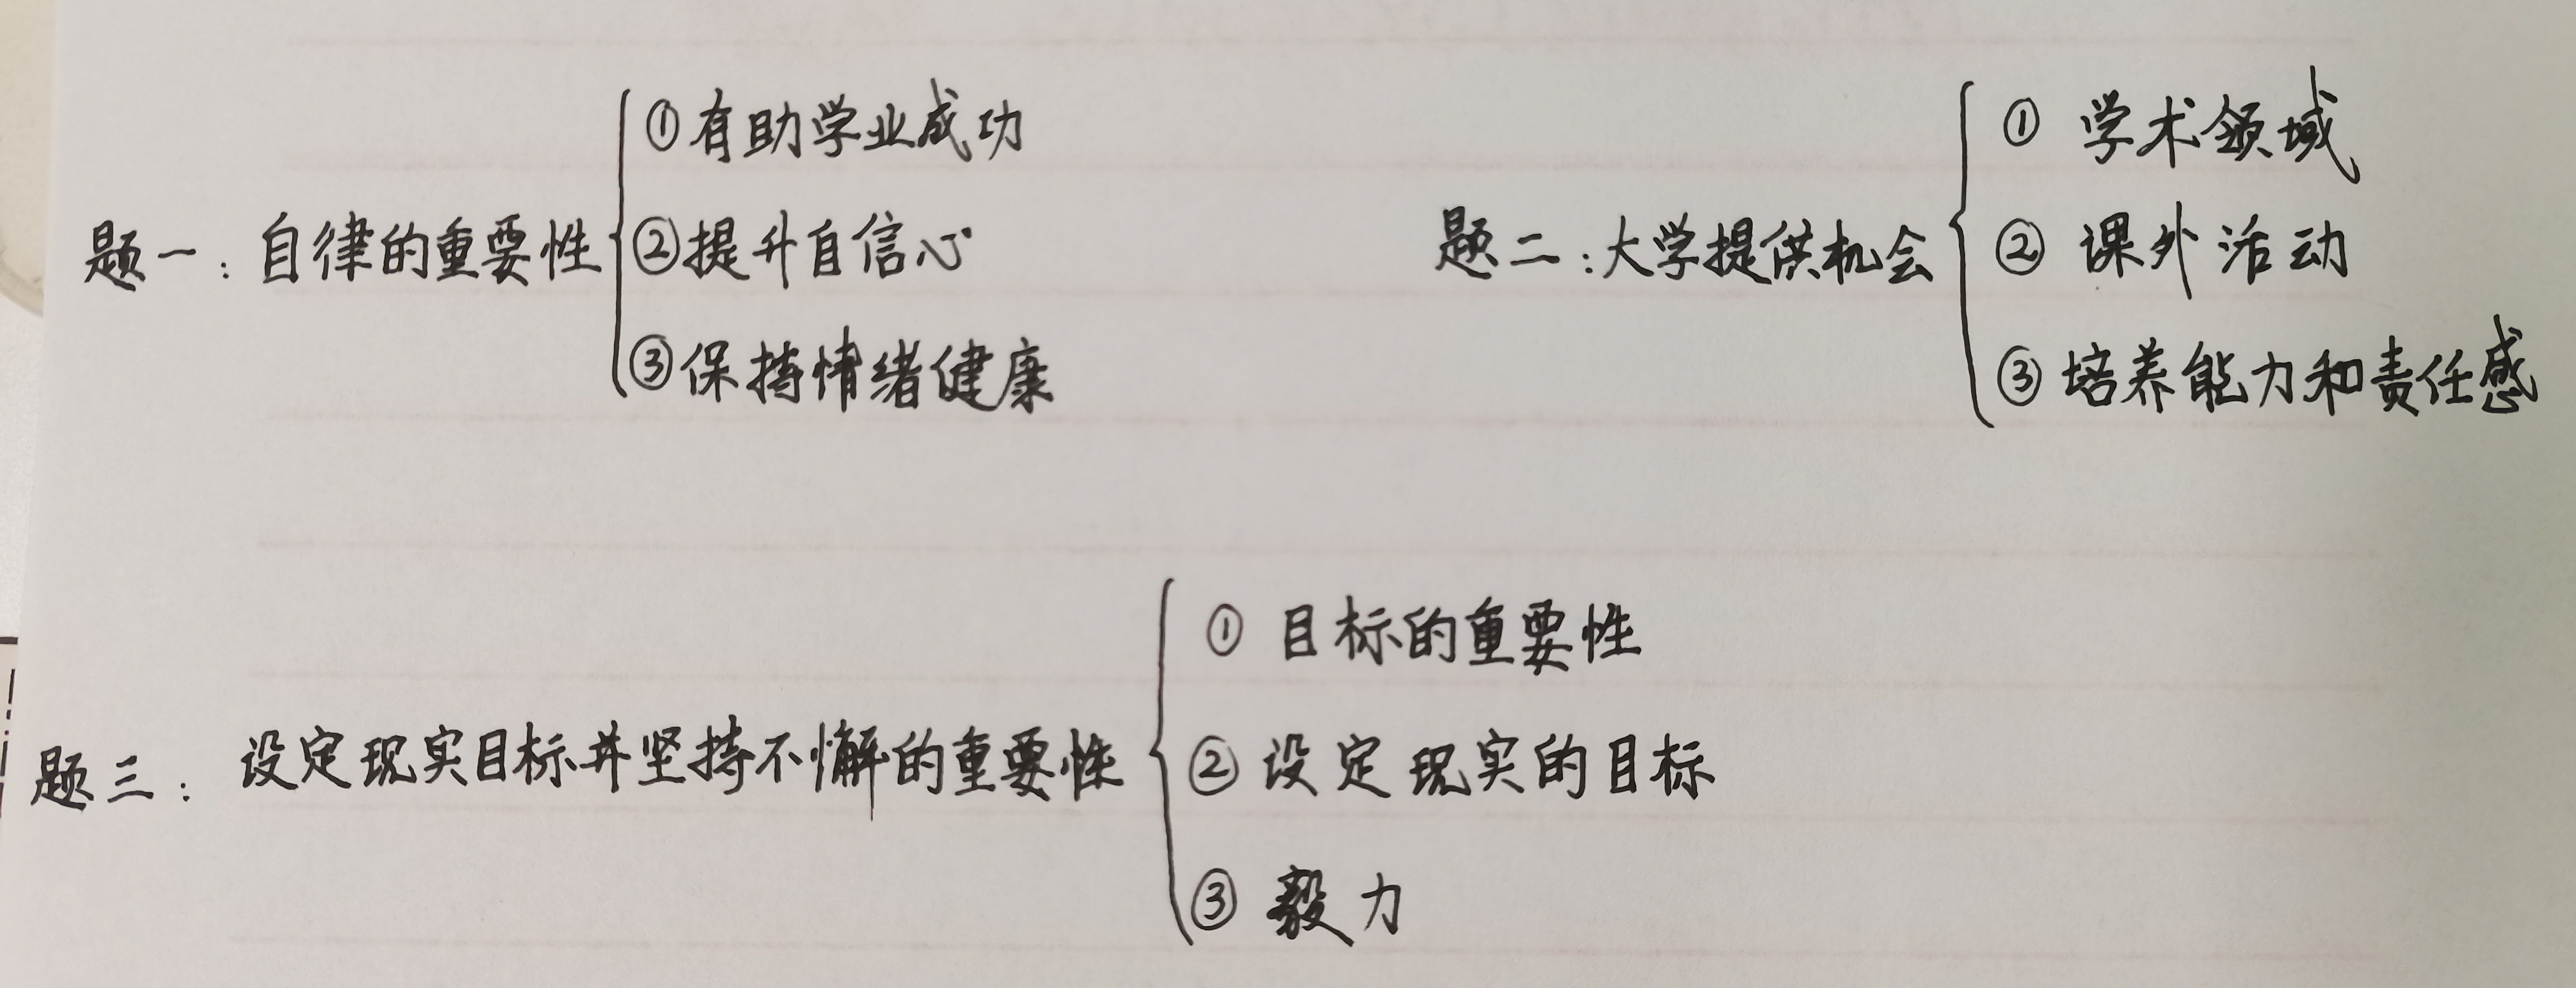 题一：自律的重要性
①有助学业成功
②提升自信心
③保持情绪健康
题二：大学提供机会
① 学术领域
② 课外活动
③ 培养能力和责任感
题三：设定现实目标并坚持不懈的重要性
① 目标的重要性
② 设定现实的目标
③ 毅力